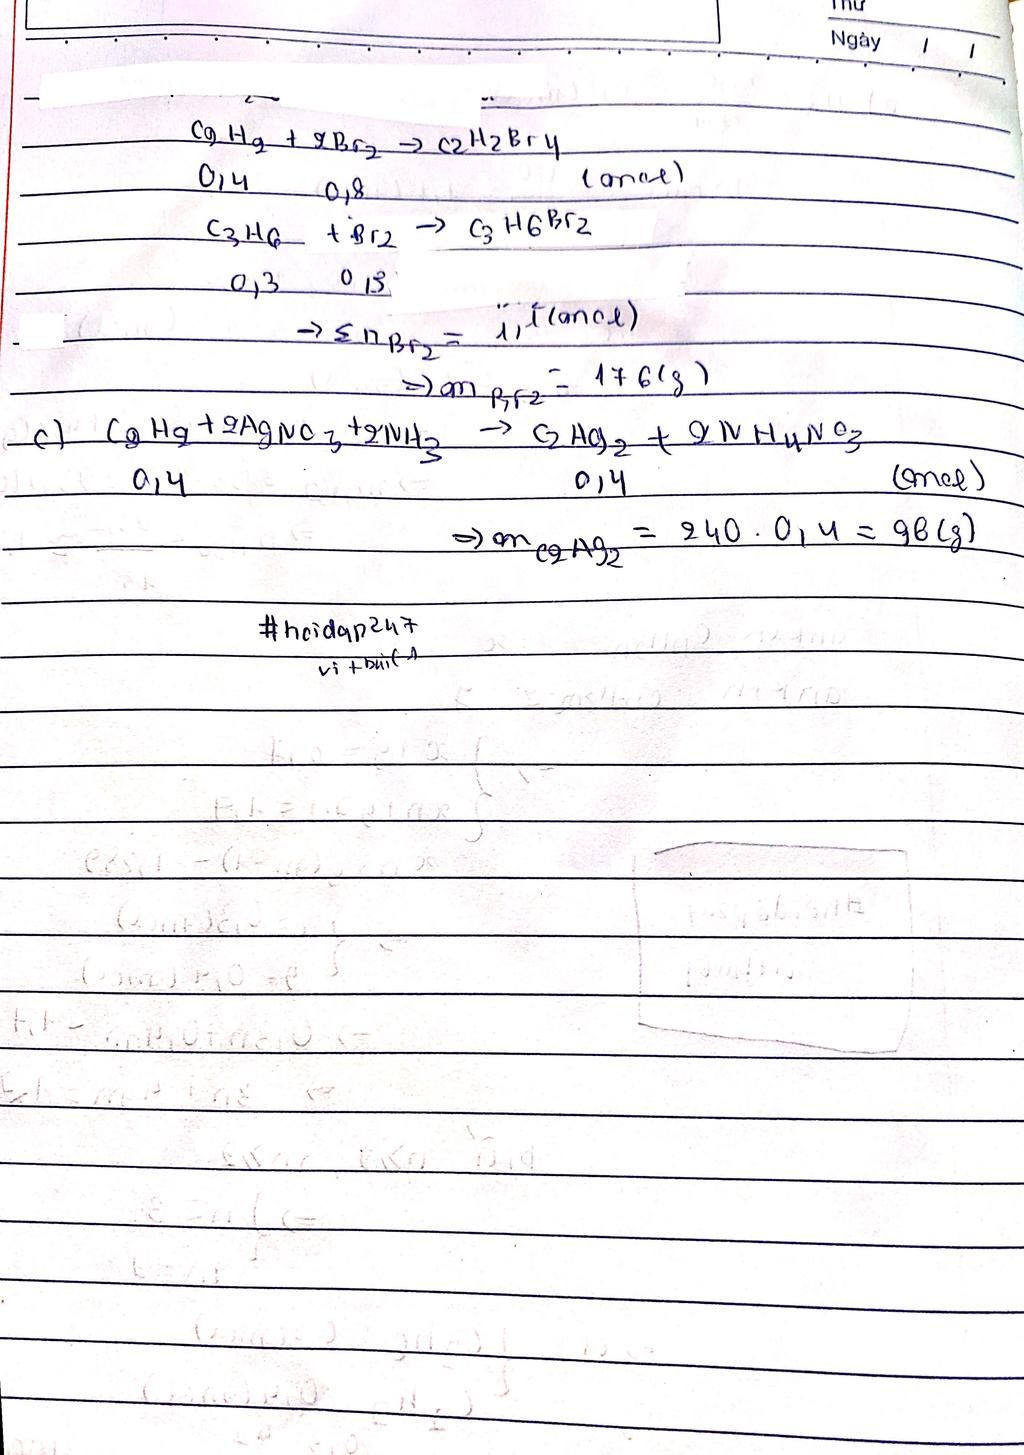 Thứ
Ngày / /
C2H2 + 2Br2 → C2H2Br4
0,4 0,8 (mol)
C3H6 + Br2 → C3H6Br2
0,3 0,3
→ Σ nBr2 = 1,1 (mol)
=> mBr2 = 176 (g)
c) C2H2 + 2AgNO3 + 2NH3 → C2Ag2 + 2NH4NO3
0,4 0,4 (mol)
=> mC2Ag2 = 240 . 0,4 = 96 (g)
#hoidap247